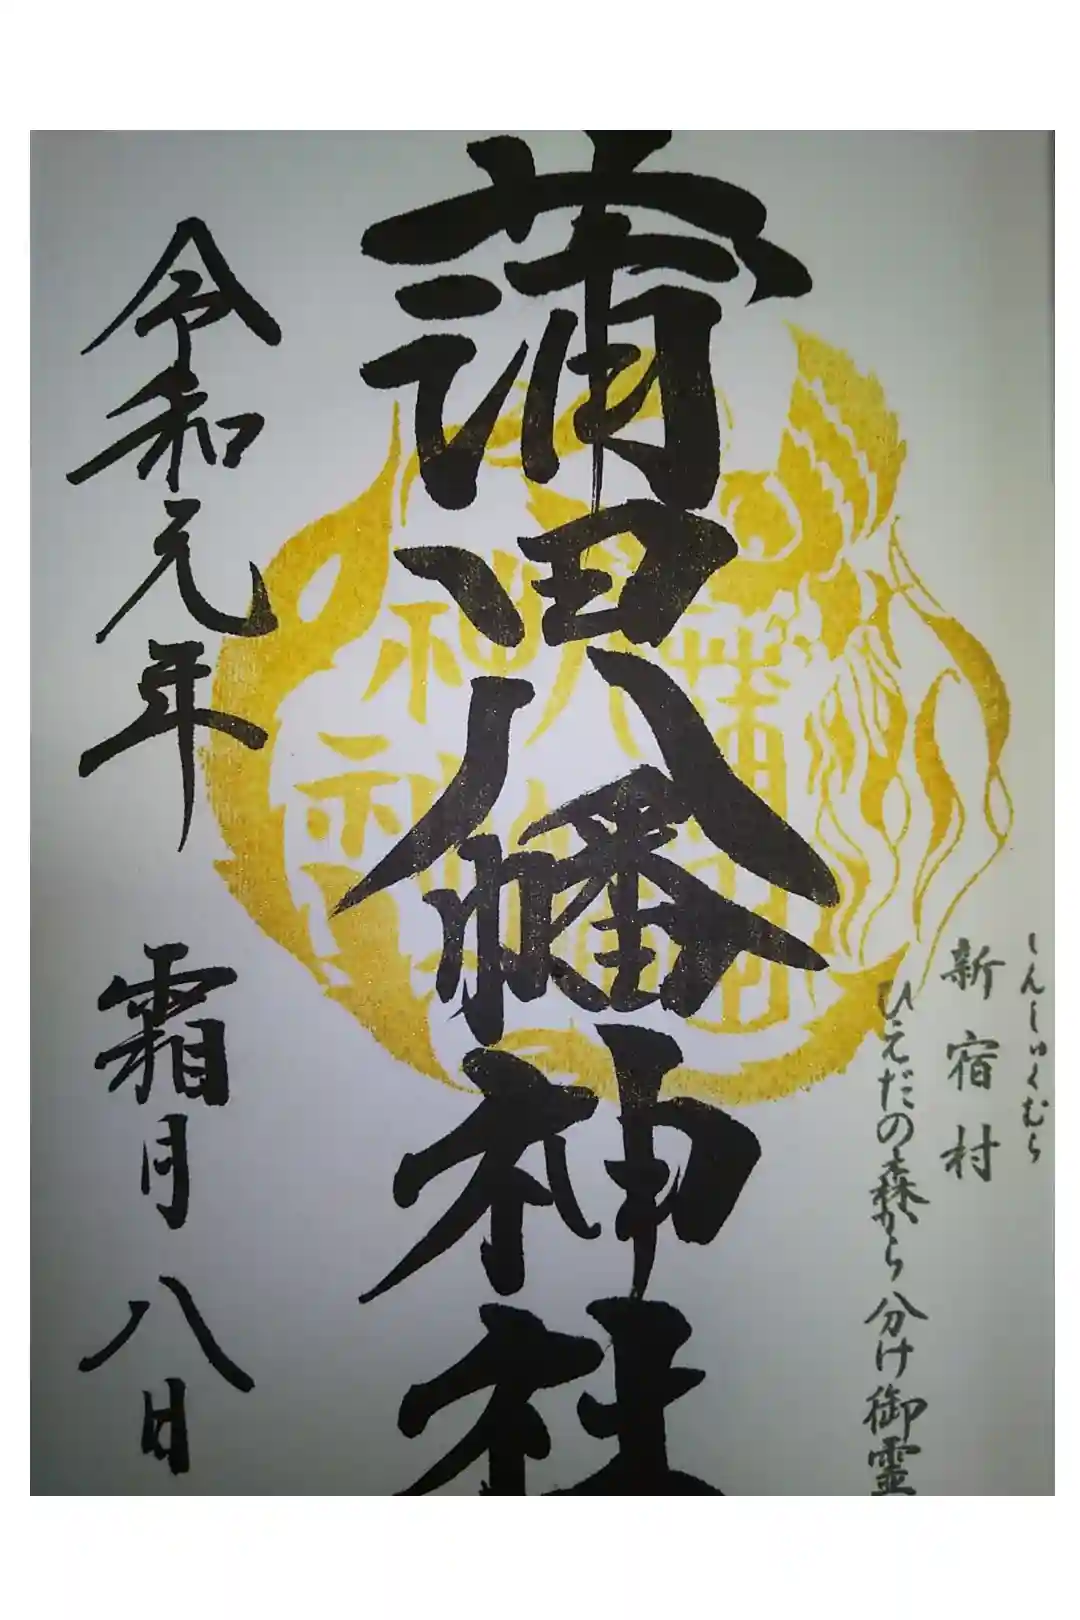 しんしゅくむら
新宿村
ひえだの森から分け御霊
蒲田八幡神社
令和元年 霜月八日